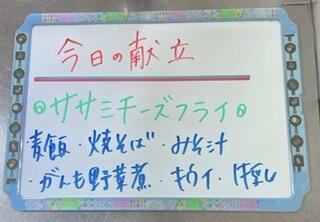 今日の献立
◎ササミチーズフライ◎
・麦飯・焼そば・みそ汁
・がんも野菜煮・キウイ・冷